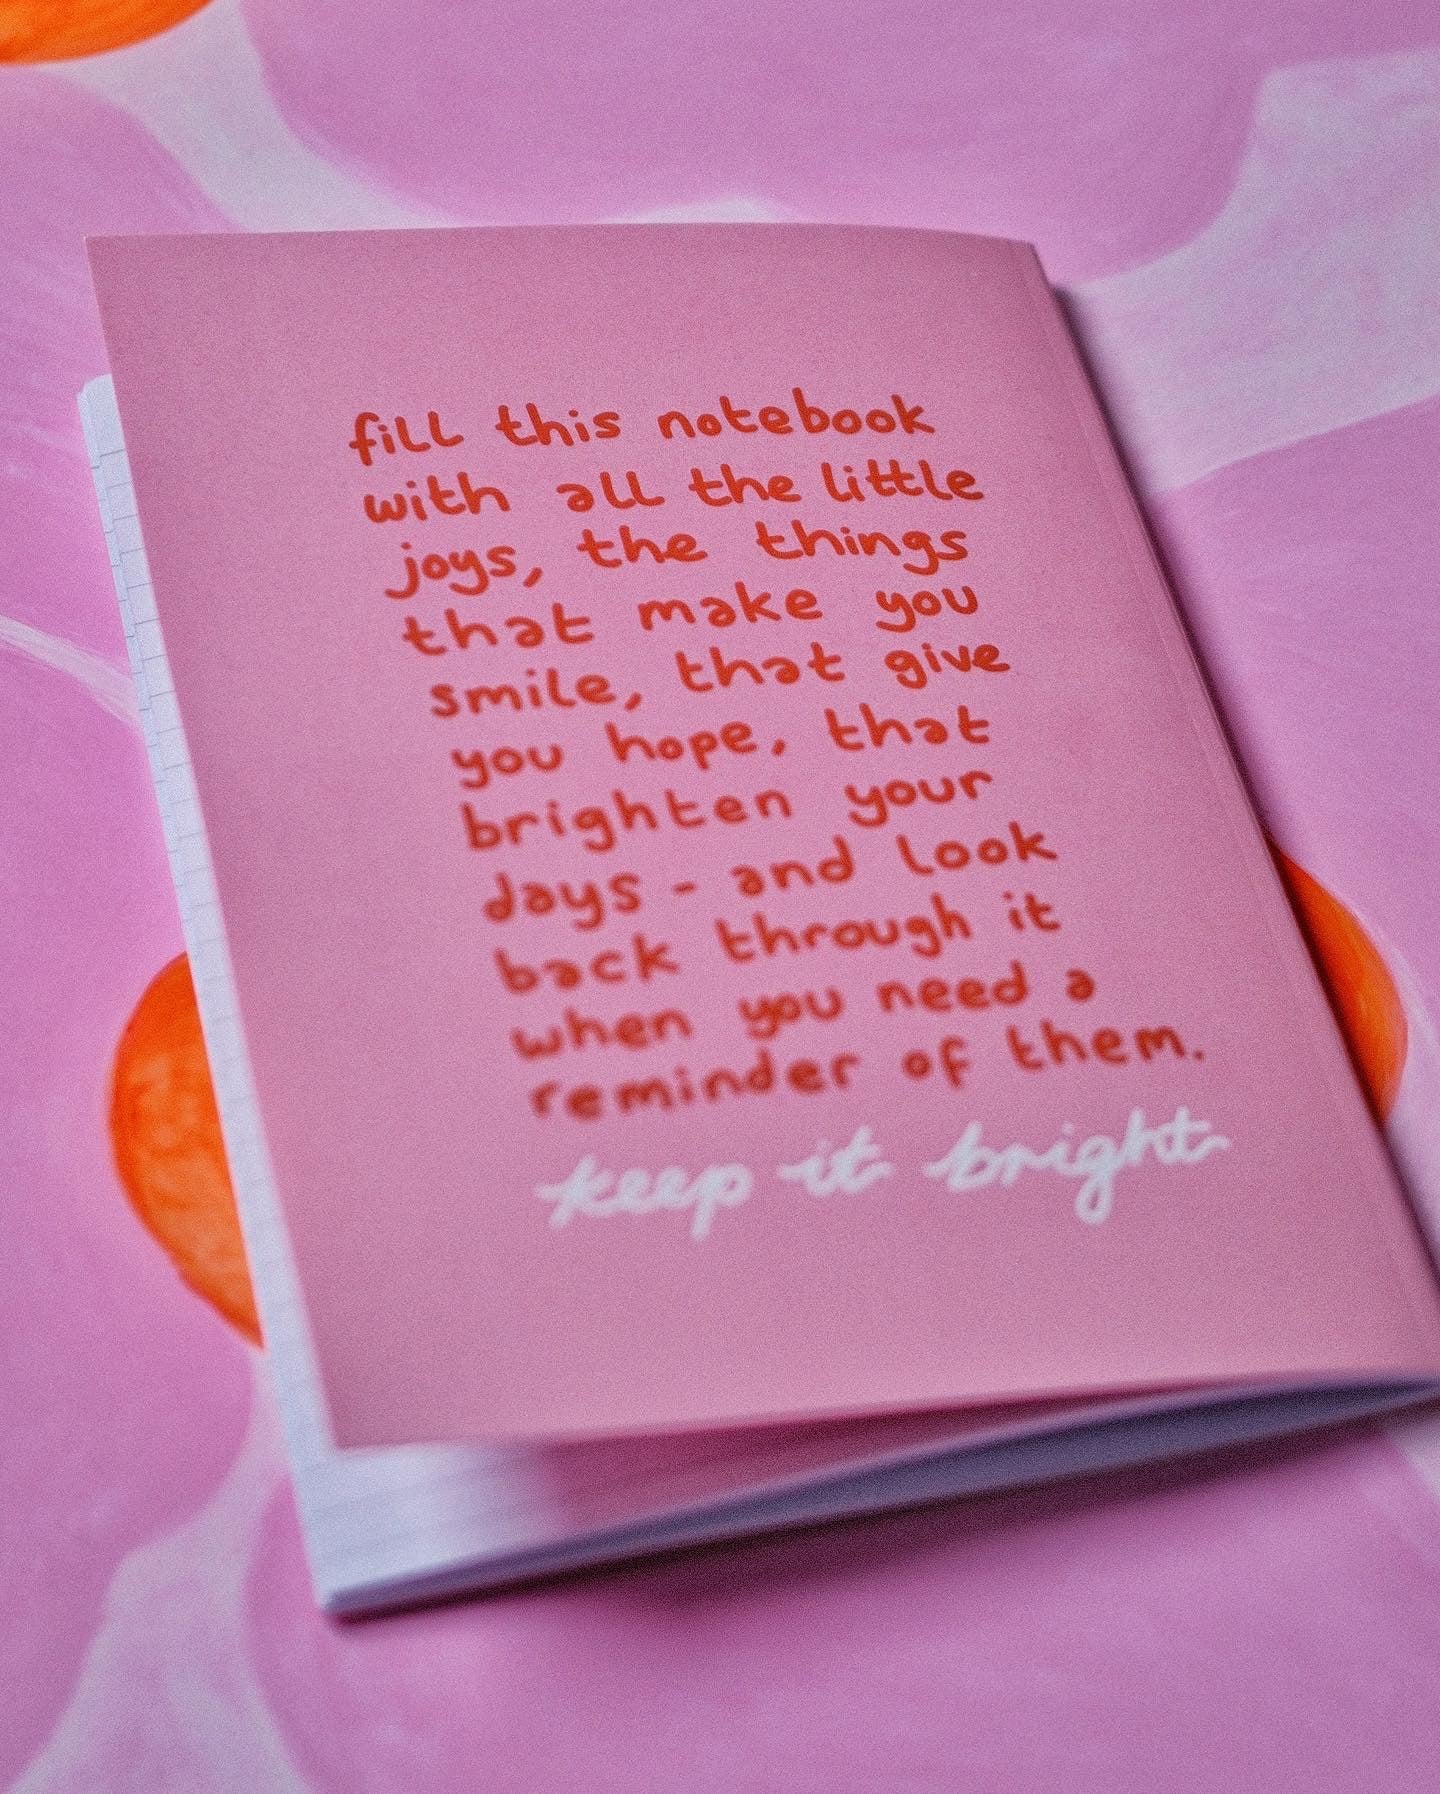 fill this notebook
with all the little
joys, the things
that make you
smile, that give
you hope, that
brighten your
days - and look
back through it
when you need a
reminder of them.
keep it bright